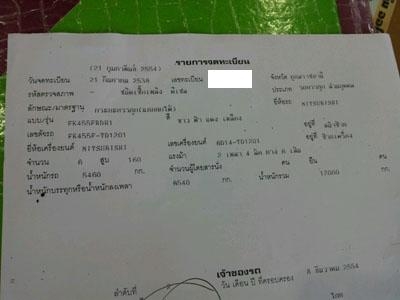 รายการจดทะเบียน
(21 กุมภาพันธ์ 2554)
วันจดทะเบียน 21 กันยายน 2538 เลขทะเบียน จังหวัด
รหัสตรวจสภาพ - ชนิดเชื้อเพลิง ดีเซล ประเภท
ลักษณะ/มาตรฐาน ยี่ห้อรถ MITSUBISHI
แบบ/รุ่น สี ขาว ฟ้า แดง เหลือง
เลขตัวรถ FK455F-TD1201 อยู่ที่
ยี่ห้อเครื่องยนต์ MITSUBISHI เลขเครื่องยนต์ 6D14-TD1201 อยู่ที่
จำนวน 6 สูบ 160 แรงม้า 2 เพลา 4 ล้อ ยาง 6 เส้น
น้ำหนักรถ 5460 กก. จำนวนผู้โดยสารนั่ง คน ยืน คน
น้ำหนักบรรทุกหรือน้ำหนักลงเพลา 6540 กก. น้ำหนักรวม 12000 กก.
เจ้าของรถ
ลำดับที่ วัน เดือน ปี ที่ครอบครอง 8 ธันวาคม 2554